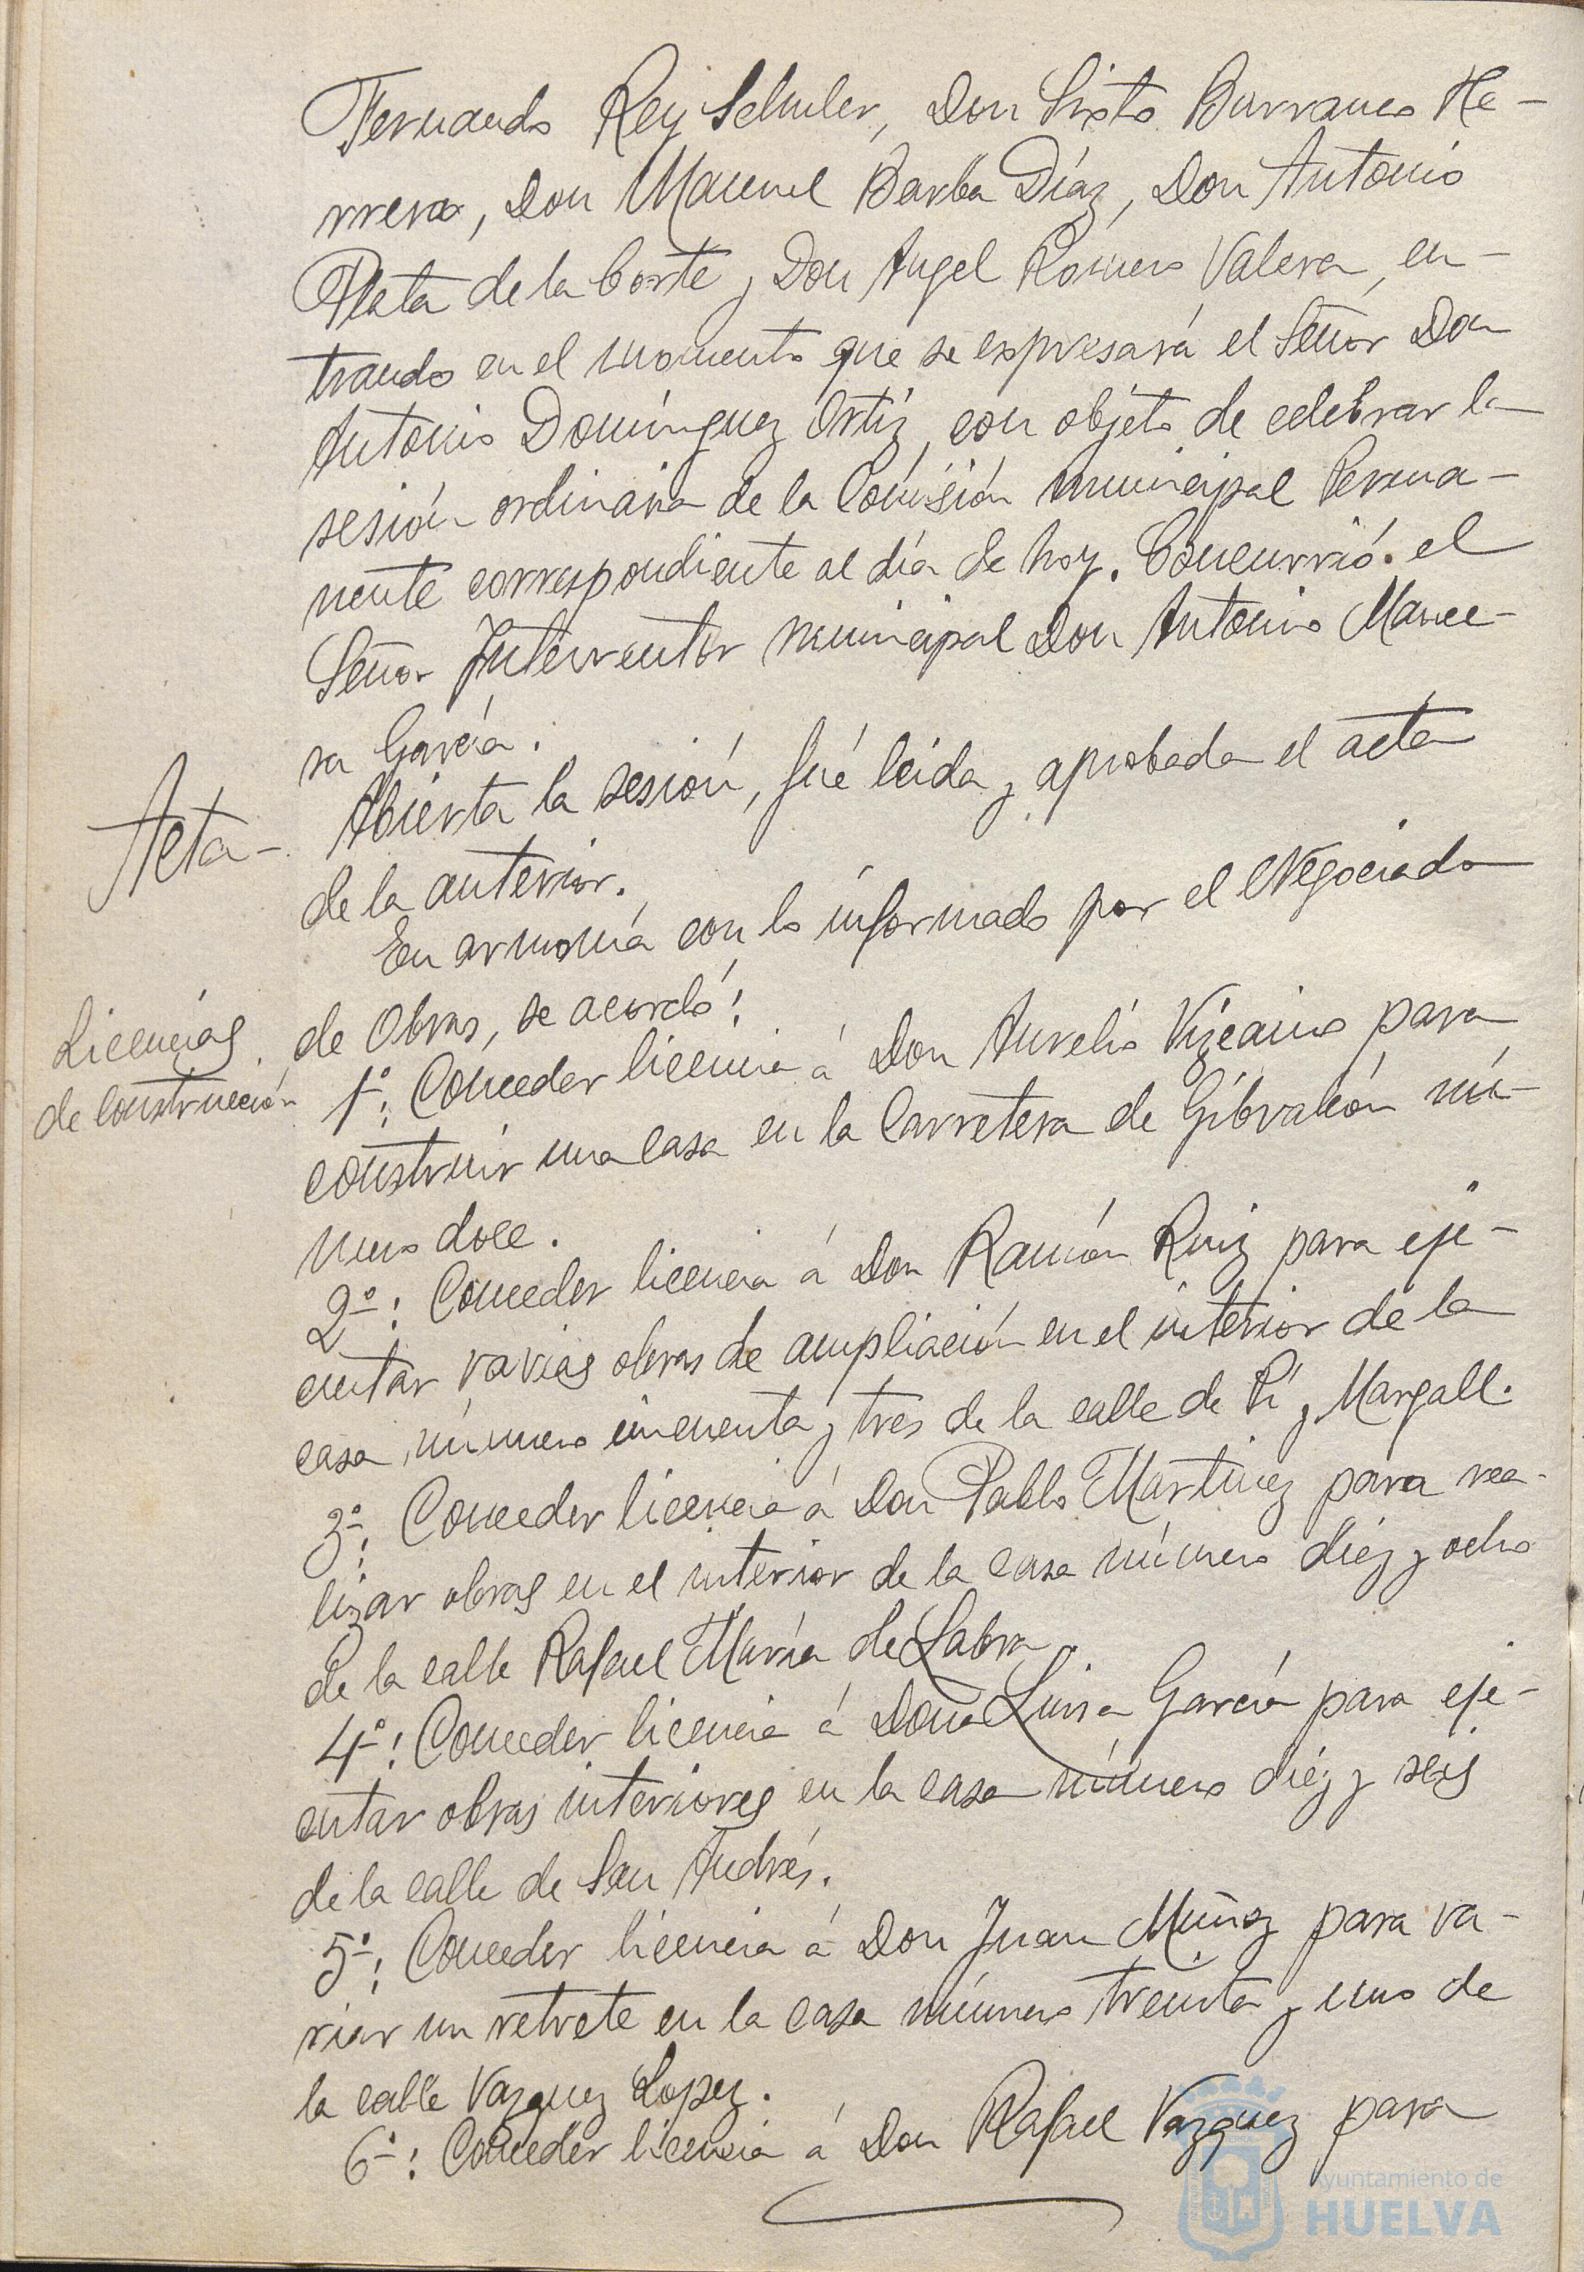 Fernando Rey Schuler, Don Sixto Barranco He-
rrera, Don Manuel Barba Díaz, Don Antonio
Plata de la Corte y Don Angel Romero Valera, en-
trando en el momento que se expresará el Señor Don
Antonio Domínguez Ortíz, con objeto de celebrar la
sesión ordinaria de la Comisión municipal Perma-
nente correspondiente al día de hoy. Concurrió el
Señor Interventor municipal Don Antonio
García.
Acta-
Abierta la sesión, fué leída y aprobada el acta
de la anterior.
En armonía con lo informado por el Negociado
de Obras, se acordó:
Licencias
de construcción
1º: Conceder licencia á Don Aurelio Vizcaino para
construir una casa en la Carretera de Gibraleón nú-
mero doce.
2º: Conceder licencia á Don Ramón Ruiz para eje-
cutar varias obras de ampliación en el interior de la
casa número cincuenta y tres de la calle de Pí y Margall.
3º: Conceder licencia á Don Pablo Martinez para rea-
lizar obras en el interior de la casa número diéz y ocho
de la calle Rafael María de Labra.
4º: Conceder licencia á Doña Luisa García para eje-
cutar obras interiores en la casa número diéz y seis
de la calle de San Andrés.
5º: Conceder licencia á Don Juan Muñoz para va-
riar un retrete en la casa número treinta y uno de
la calle Vazquez Lopez.
6º: Conceder licencia á Don Rafael Vazquez para
Ayuntamiento de
HUELVA